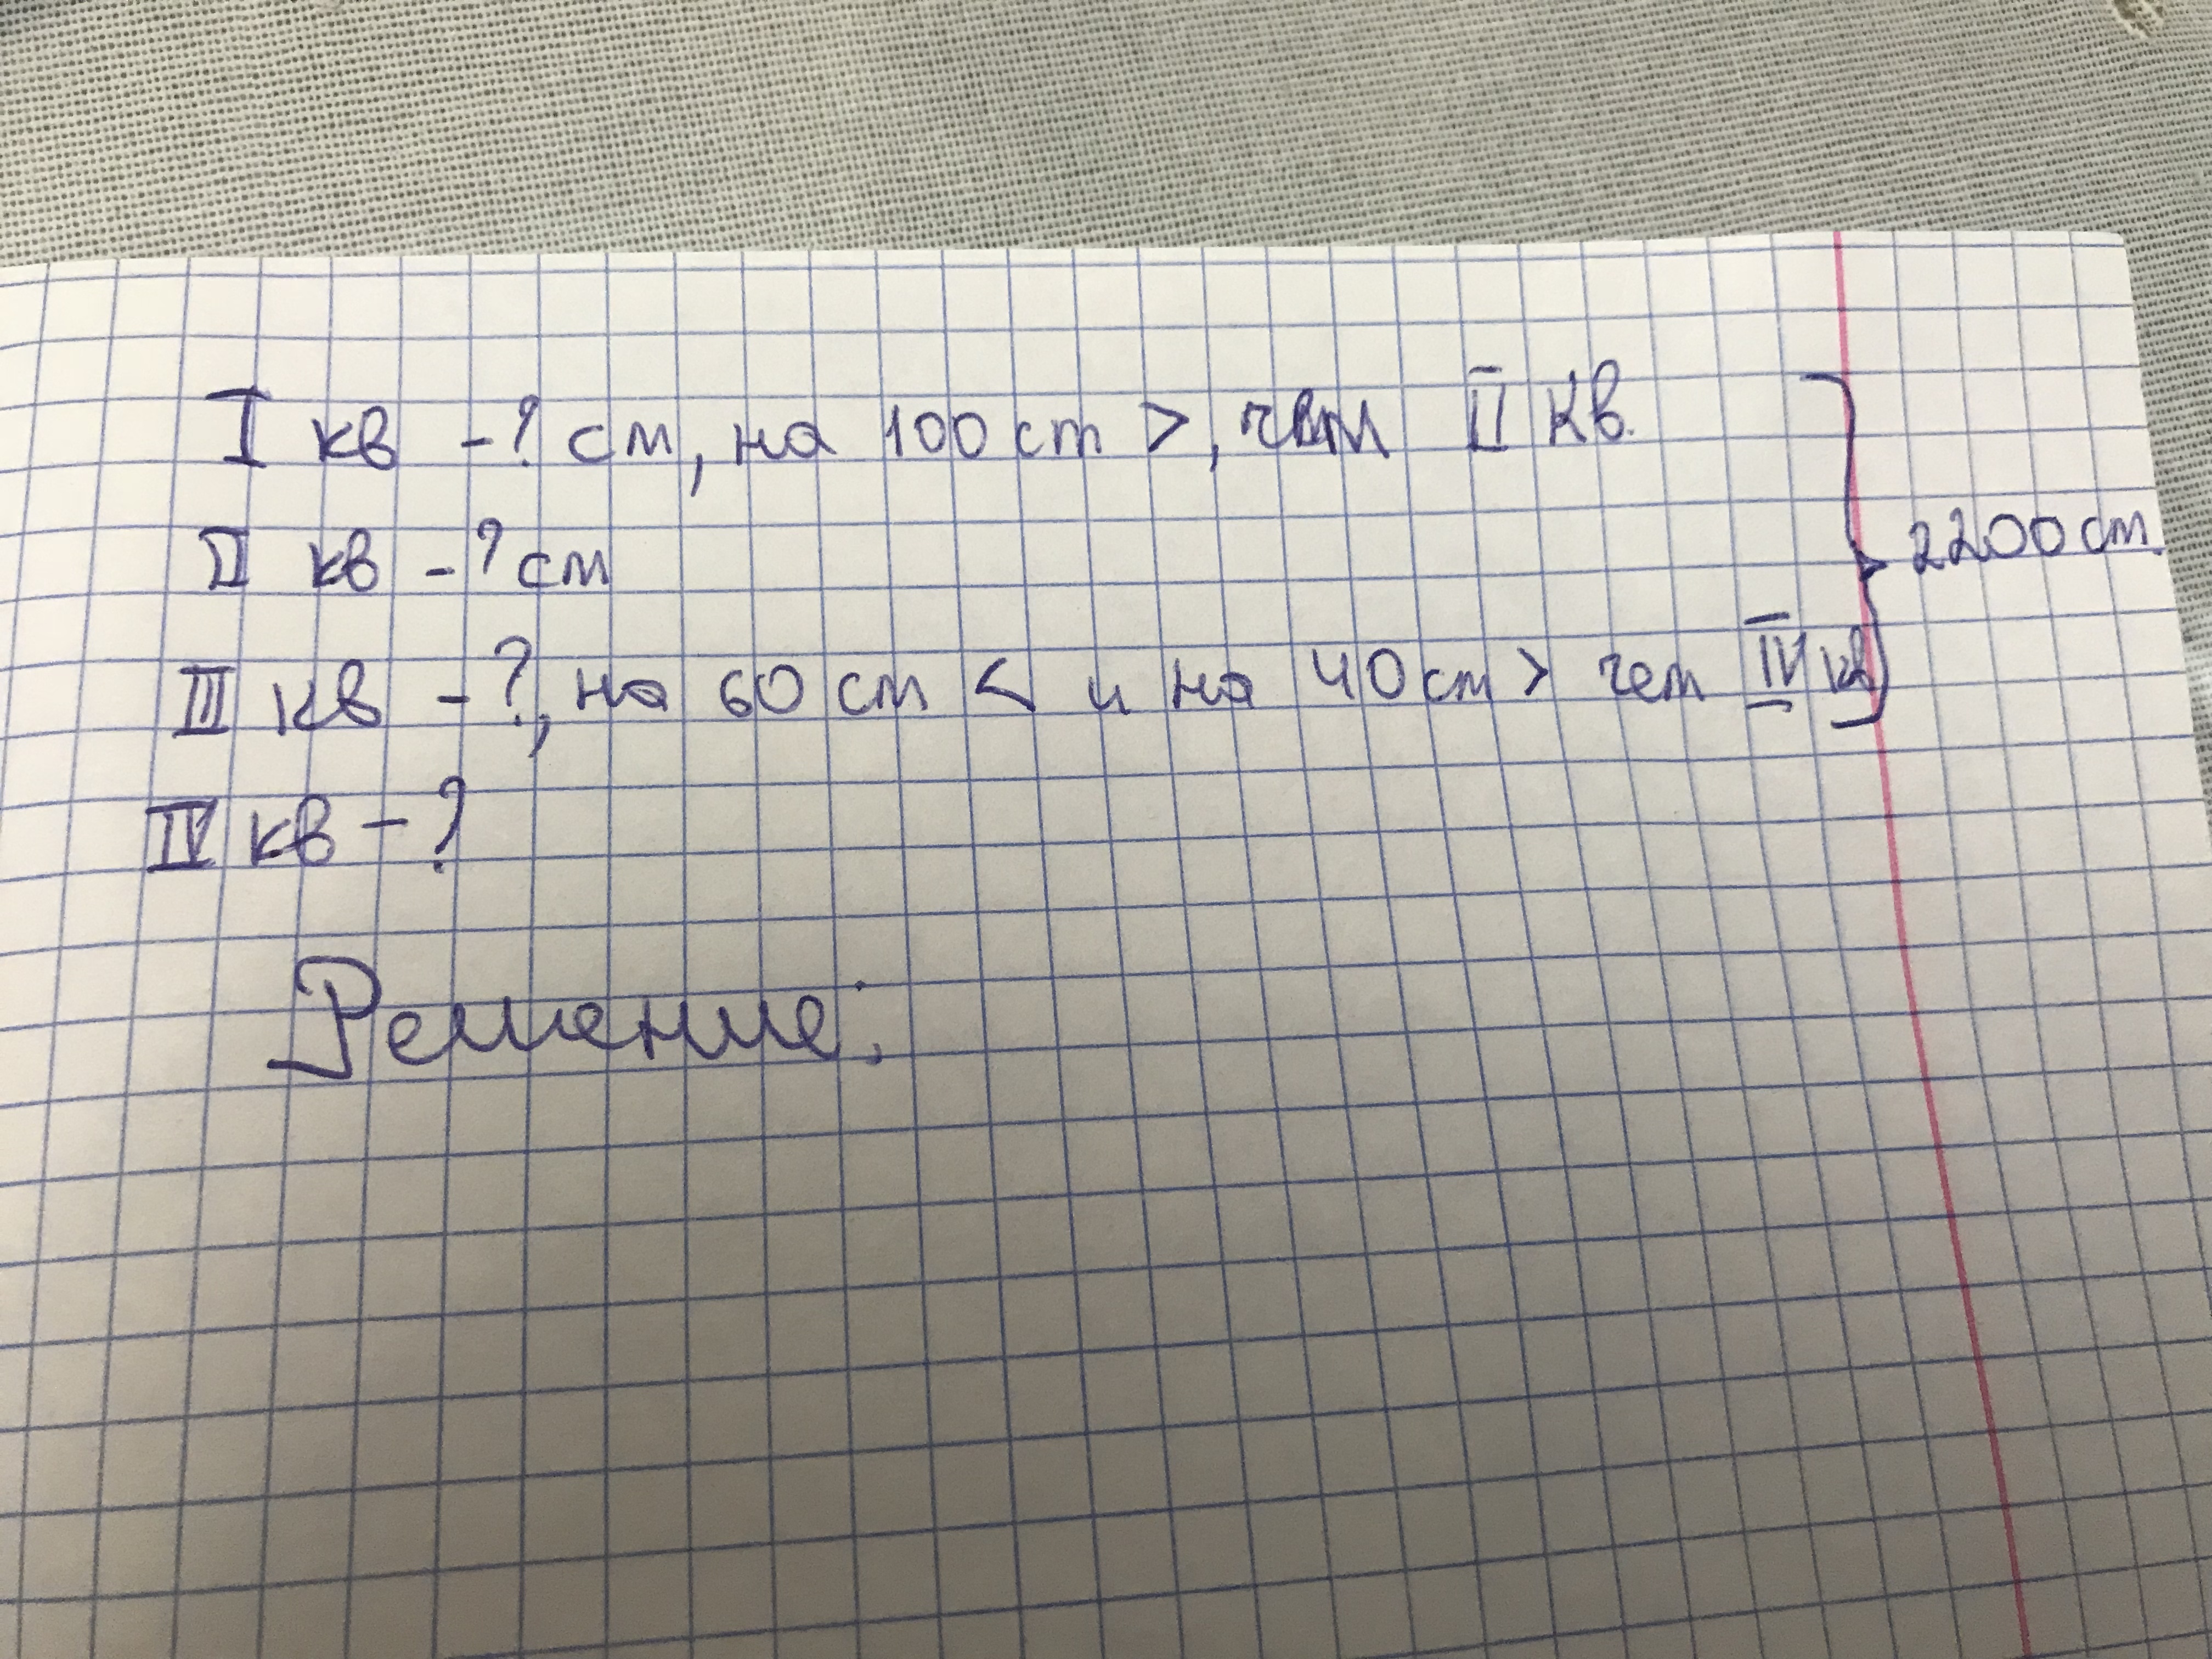 I кв - ? см, на 100 см >, чем II кв.
II кв - ? см
III кв - ?, на 60 см < и на 40 см > чем IV кв
2200 см.
IV кв - ?
Решение: